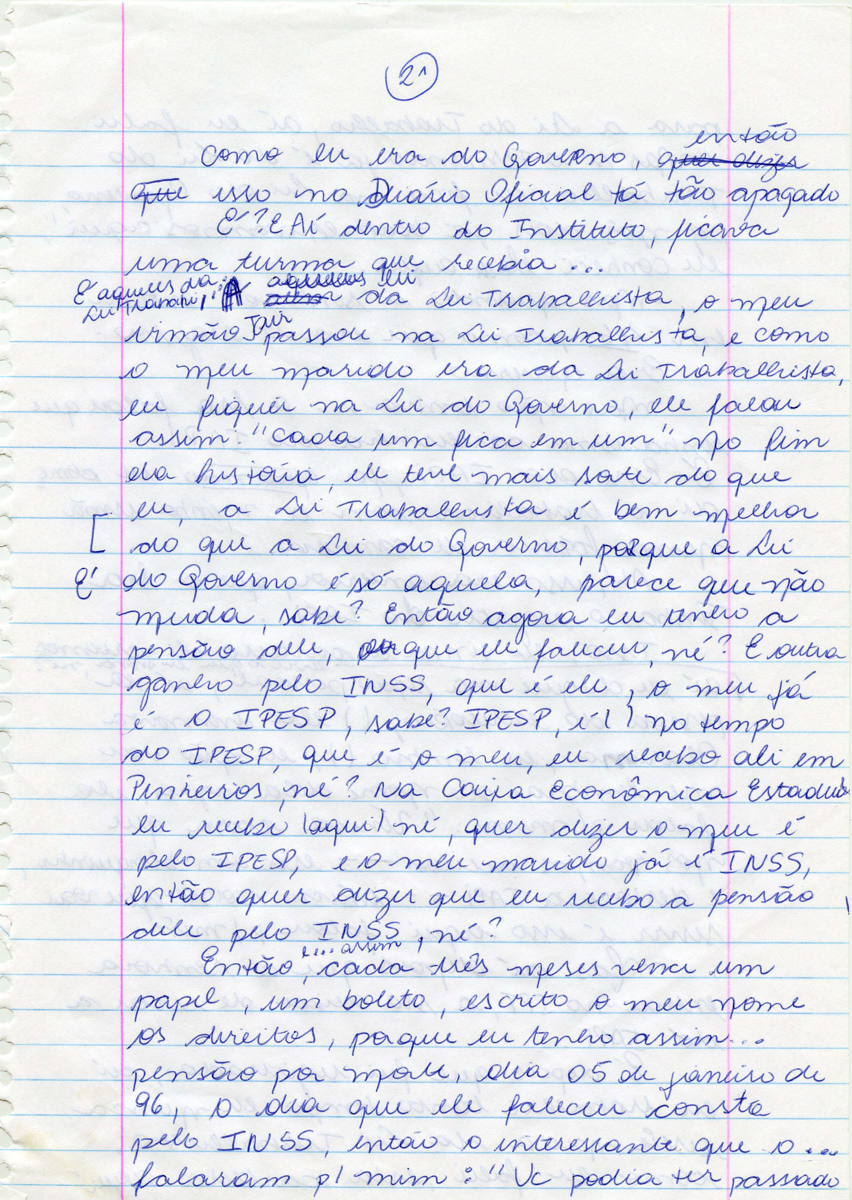 21
então
Como eu era do Governo, quer dizer
que isso no Diário Oficial tá tão apagado
É? E Aí dentro do Instituto, ficava
uma turma que recebia...
E aqueles da Lei Trabalh,
aqueles lei
da Lei Trabalhista, o meu
Jair
irmão passou na Lei Trabalhista, e como
o meu marido era da Lei Trabalhista,
eu fiquei na Lei do Governo, ele falou
assim: "Cada um fica em um" no fim
da história, ele teve mais sorte do que
eu, a Lei Trabalhista é bem melhor
[ do que a Lei do Governo, porque a Lei
É do Governo é só aquela, parece que não
muda, sabe? Então agora eu tenho a
pensão dele, porque ele faleceu, né? E outra
ganho pelo INSS, que é ele, o meu já
é o IPESP, sabe? IPESP, é( ) no tempo
do IPESP, que é o meu, eu recebo ali em
Pinheiros, né? Na Caixa Econômica Estadual
eu recebi (aqui) né, quer dizer o meu é
pelo IPESP, e o meu marido já é INSS,
então quer dizer que eu recebo a pensão
dele pelo INSS, né?
é... assim
Então, cada três meses vem um
papel, um boleto, escrito o meu nome
os direitos, porque eu tenho assim...
pensão por morte, dia 05 de janeiro de
96, o dia que ele faleceu consta
pelo INSS, então o interessante que o...
falaram p/ mim: "Vc podia ter passado